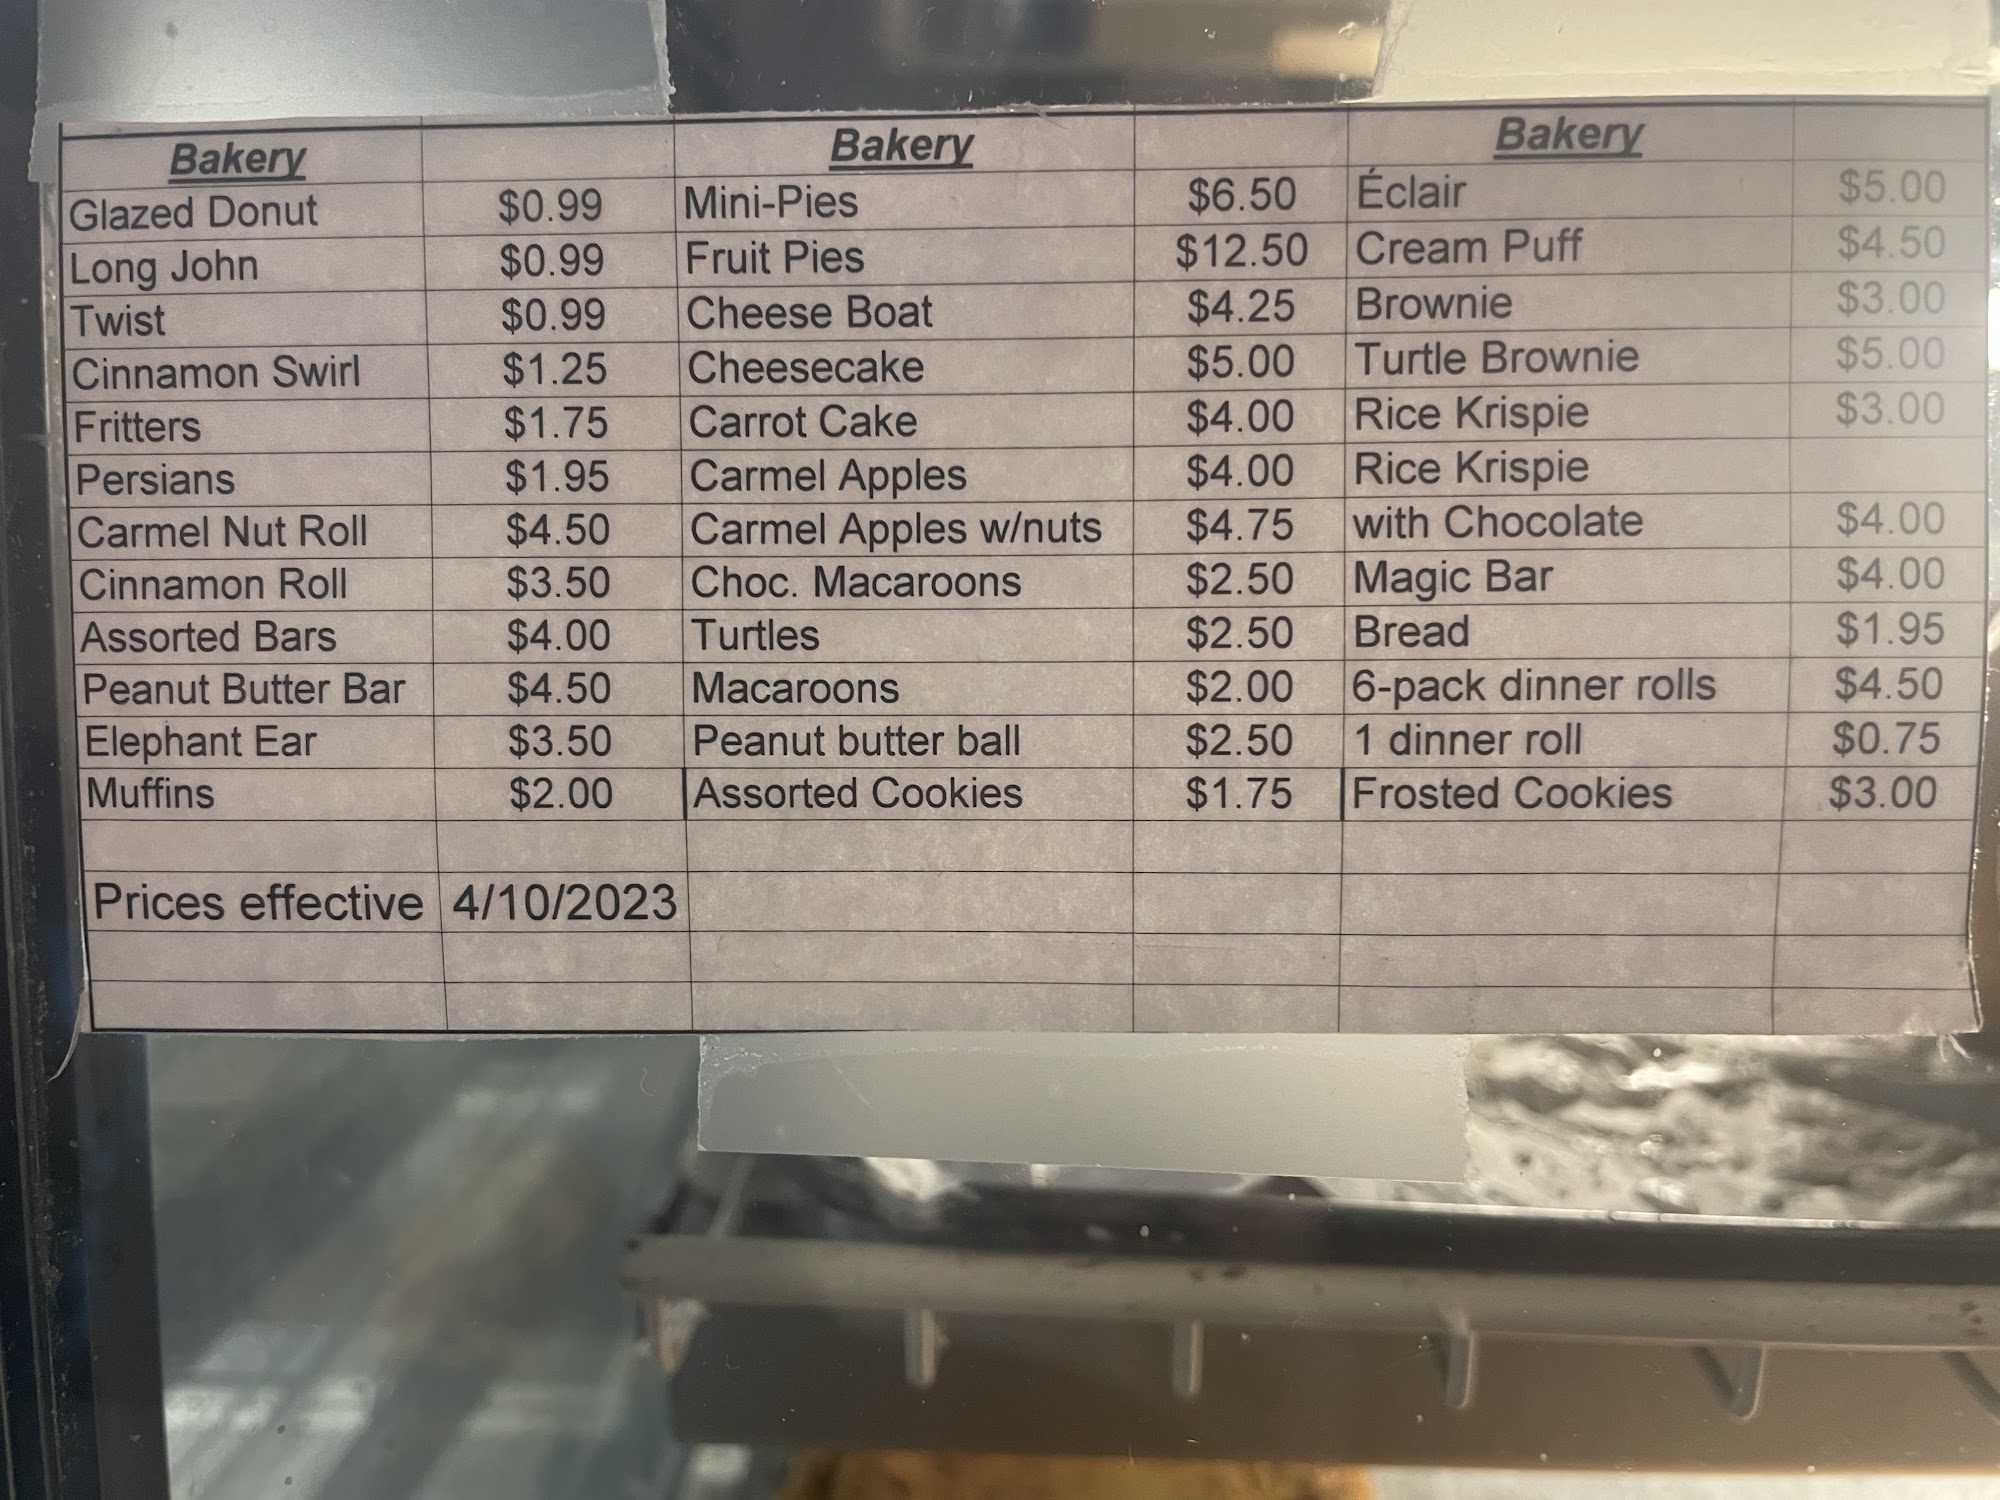 Bakery Bakery Bakery
Glazed Donut $0.99 Mini-Pies $6.50 Éclair $5.00
Long John $0.99 Fruit Pies $12.50 Cream Puff $4.50
Twist $0.99 Cheese Boat $4.25 Brownie $3.00
Cinnamon Swirl $1.25 Cheesecake $5.00 Turtle Brownie $5.00
Fritters $1.75 Carrot Cake $4.00 Rice Krispie $3.00
Persians $1.95 Carmel Apples $4.00 Rice Krispie
Carmel Nut Roll $4.50 Carmel Apples w/nuts $4.75 with Chocolate $4.00
Cinnamon Roll $3.50 Choc. Macaroons $2.50 Magic Bar $4.00
Assorted Bars $4.00 Turtles $2.50 Bread $1.95
Peanut Butter Bar $4.50 Macaroons $2.00 6-pack dinner rolls $4.50
Elephant Ear $3.50 Peanut butter ball $2.50 1 dinner roll $0.75
Muffins $2.00 Assorted Cookies $1.75 Frosted Cookies $3.00
Prices effective 4/10/2023